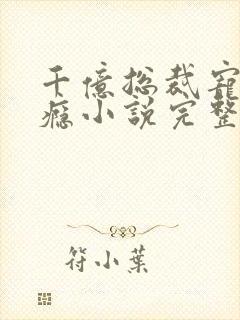 千億总裁寵
癮小說完整
符小葉